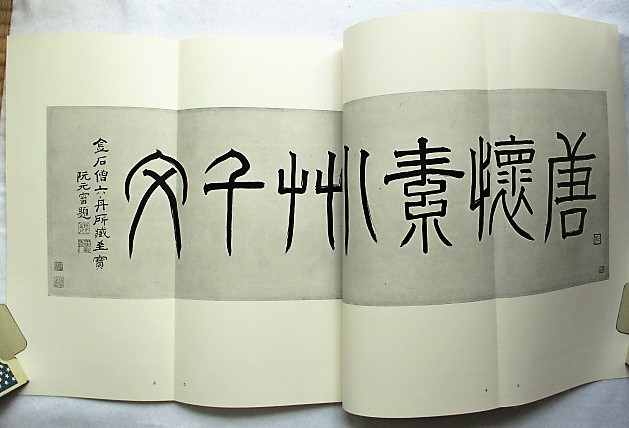 唐懷素小艸千文
金石僧六舟所藏至寶
阮元審題